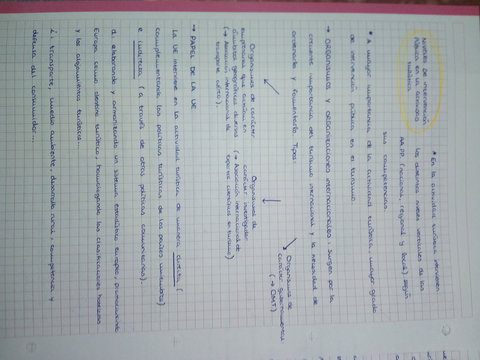 NIVELES DE INTERVENCIÓN PÚBLICA EN LA ECONOMÍA TURÍSTICA
* En la actividad turística intervienen
los distintos niveles verticales de las
AA.PP. (nacional, regional y local) según
sus competencias.
* A mayor importancia de la actividad turística, mayor grado
de intervención pública en el turismo.
→ ORGANISMOS Y ORGANIZACIONES INTERNACIONALES: surgen por la
creciente importancia del turismo internacional y la necesidad de
ordenarlo y fomentarlo. Tipos:
Organismos de carácter
empresarial que actúan en
distintos
(→ Asociación internacional de
transporte aéreo).
Organismos de
carácter
(→ Asociación internacional de
expertos científicos en turismo)
Organismos de
carácter gubernamental
(→ OMT).
→ PAPEL DE LA UE
La UE interviene en la actividad turística de manera directa (
complementando las políticas turísticas de los países miembros)
e indirecta (a través de otras políticas comunitarias).
d: elaborando y armonizando un sistema estadístico europeo, promocionando
Europa como destino turístico, homologando las clasificaciones hoteleras
y los alojamientos turísticos.
i: transporte, medio ambiente, desarrollo rural, competencia y
defensa del consumidor...